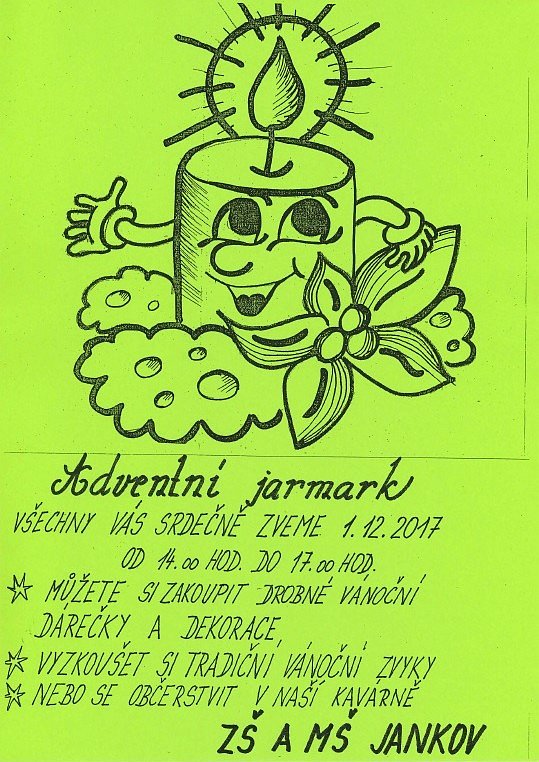 Adventní jarmark
VŠECHNY VÁS SRDEČNĚ ZVEME 1.12.2017
OD 14.00 HOD. DO 17.00 HOD.
MŮŽETE SI ZAKOUPIT DROBNÉ VÁNOČNÍ
DÁREČKY A DEKORACE,
VYZKOUŠET SI TRADIČNÍ VÁNOČNÍ ZVYKY
NEBO SE OBČERSTVIT V NAŠÍ KAVÁRNĚ
ZŠ A MŠ JANKOV